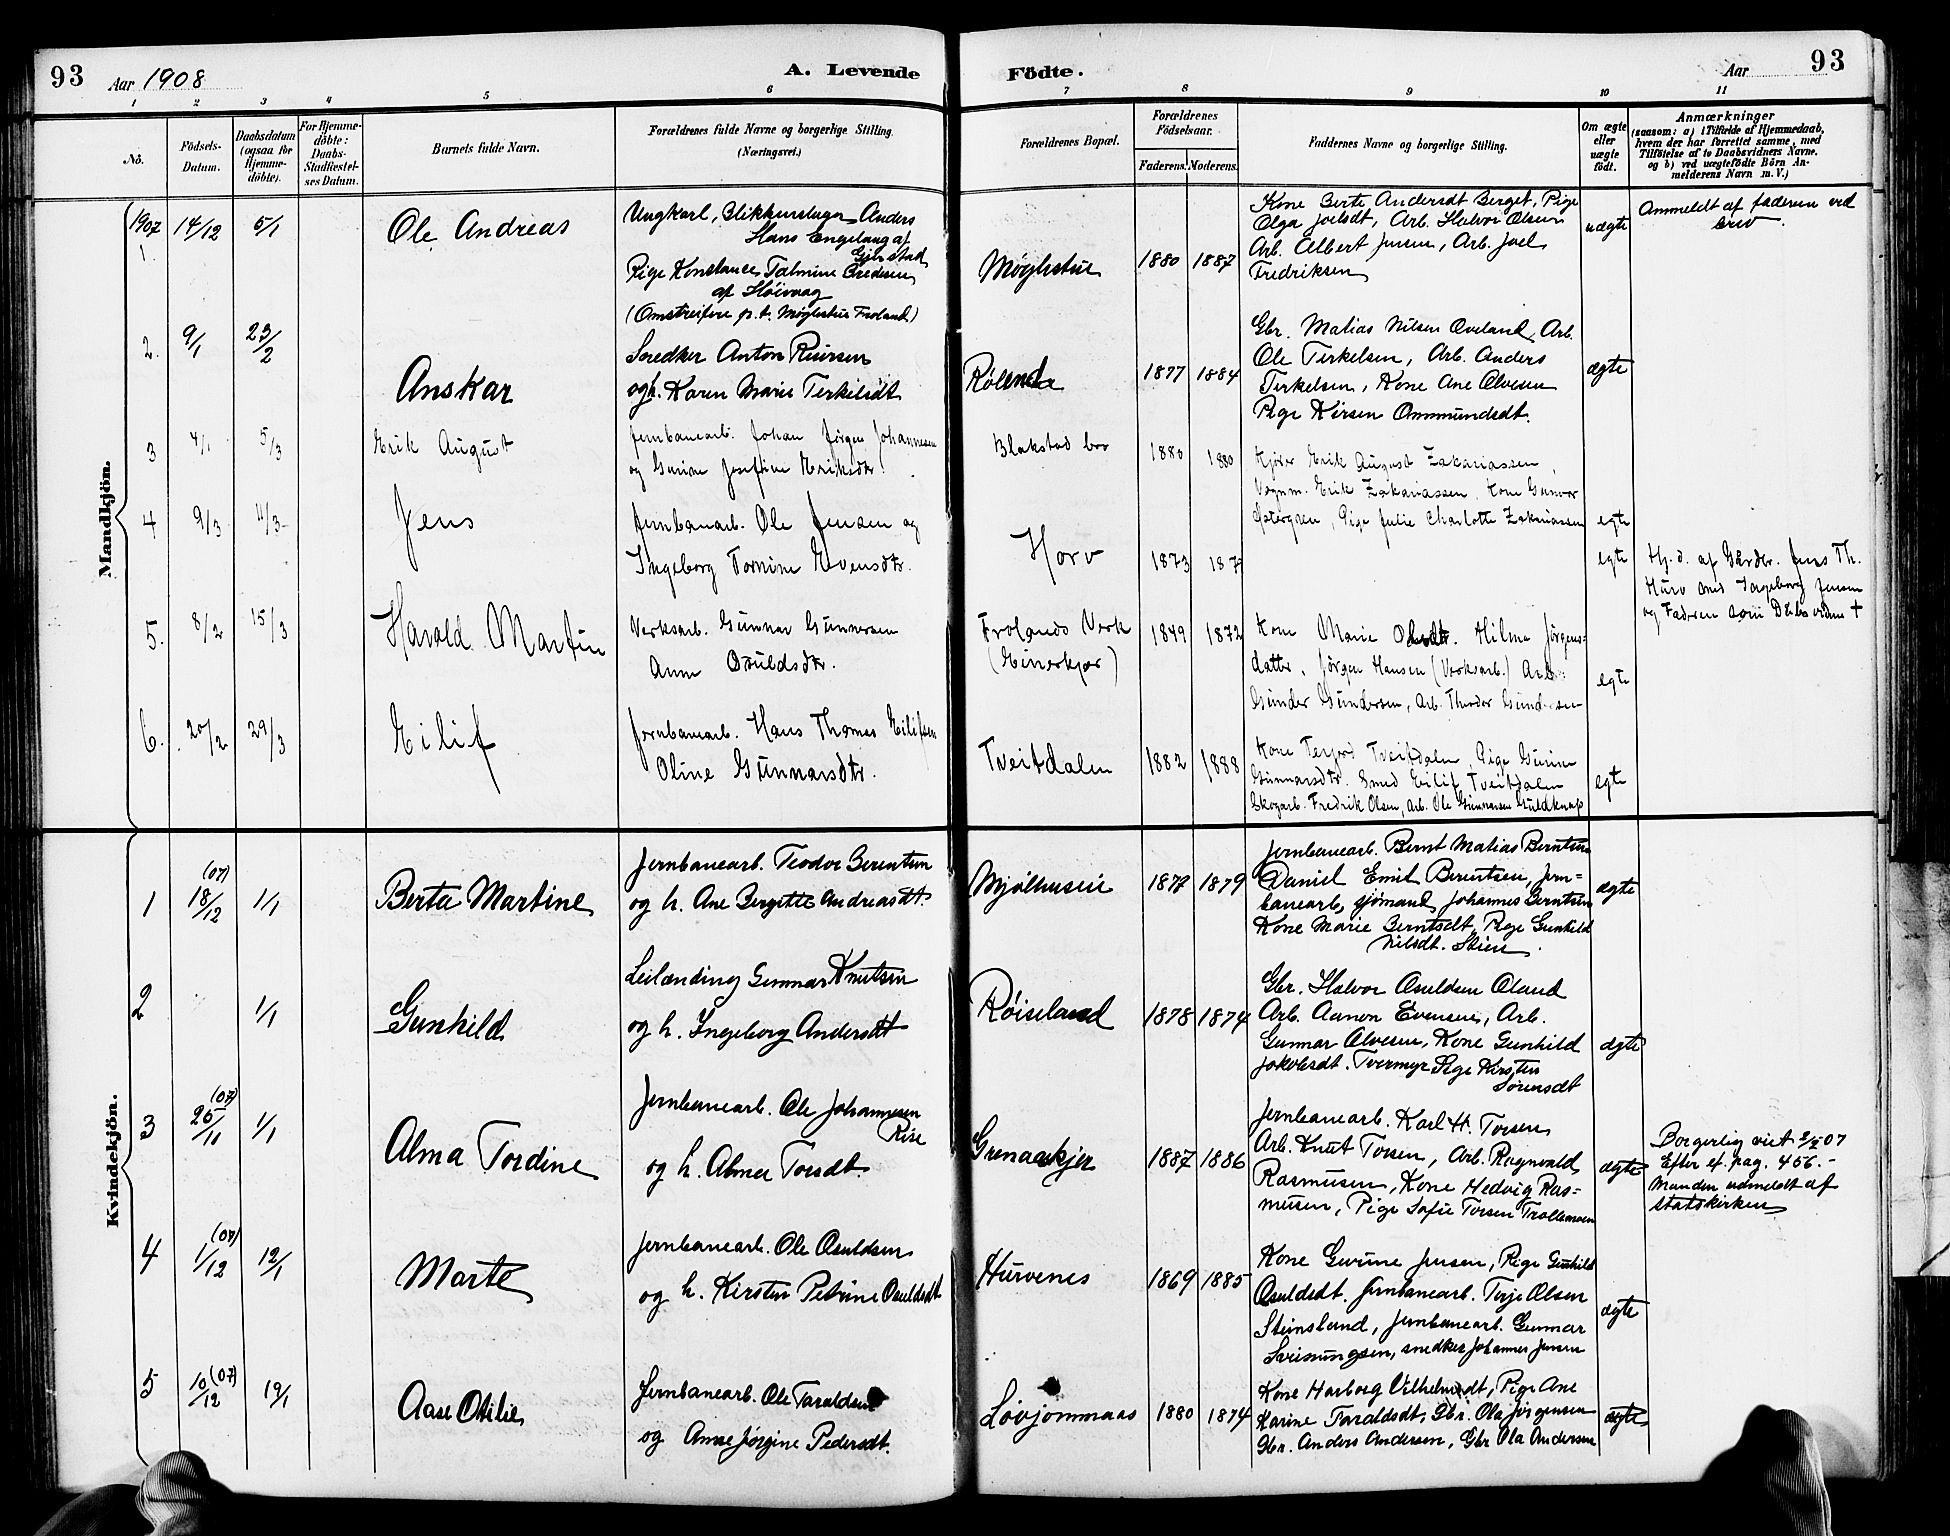 93 Aar 1908 A. Levende Födte. Aar 93
1 2 3 4 5 6 7 8 9 10 11
No.
Födsels-
Datum.
Daabsdatum
(ogsaa for
Hjemme-
döbte).
For Hjemme-
döbte:
Daabs-
Stadfæstel-
ses Datum.
Barnets fulde Navn.
Forældrenes fulde Navne og borgerlige Stilling.
(Næringsvei.)
Forældrenes Bopæl.
Forældrenes
Födselsaar.
Faderens. Moderens.
Faddernes Navne og borgerlige Stilling.
Om ægte
eller
uægte
födt.
Anmærkninger
(saasom: a) i Tilfælde af Hjemmedaab,
hvem der har forrettet samme, med
Tilföielse af to Daabsvidners Navne,
og b) ved uægtefödte Börn An-
melderens Navn m. V.)
Mandkjön.
1907
1 14/12 5/1
Ole Andreas
Ungkarl, Blikkenslager Anders
Hans Engelaug af
Gjerstad
Pige Konstance Talmine Bredesen
af Höivaag
(Omstreifere p.t. Møglestue Froland)
Møglestue
1880 1887
Kone Berte Andersdt Berget, Pige
Olga Joelsdt, Arb. Halvor Olsen
Arb. Albert Jensen, Arb. Joel
Fredriksen
uægte
Anmeldt af faderen ved
brev.
2. 9/1 23/2
Anskar
Snedker Anton Reiersen
og h. Karen Marie Terkilsdt
1877 1884
Gbr. Matias Nilsen Oveland, Arb.
Ole Terkelsen, Arb. Anders
Terkelsen, Kone Ane Olvesen
Pige Kirsen Ommundsdt.
ægte
3 4/1 5/3
Erik August
Jernbanearb. Johan Jørgen Johannesen
og Gurine Josefine Eriksdtr.
Blakstad bro
1880 1880
Erik August Zakariassen,
Vognm. Erik Zakariassen, Kone Gunvor
Østergren, Pige Julie Charlotte Zakariassen
egte
4 9/3 11/3
Jens
Jernbanarb. Ole Jensen og
Ingeborg Tomine Evensdtr.
Horv
1873 187
egte
Hj. d. af Gårdbr. Jens Th.
Hurv med Ingeborg Jensen
og Faderen som Dåbsvidne †
5. 8/2 15/3
Harald Martin
Verksarb. Gunnar Gunnersen
Anne Osuldsdtr.
Frolands Verk
(Einerkjær)
1849 1872
Kone Marie Olsdtr. Hilma Jörgens-
datter, Jörgen Hansen (Verksarb.) Arb.
Gunder Gundersen, Arb. Theodor Gundersen
egte
6. 20/2 29/3
Eilif
Jernbanearb. Hans Thomas Eilifsen
Oline Gunnarsdtr.
Tveitdalen
1882 1888
Kone Terjerd Tveitdalen, Pige Gurine
Gunnarsdtr. Smed Eilif Tveitdalen
Skogarb. Fredrik Olsen, Arb. Ole Gunnarsen Guldknap
egte
Kvindekjön.
1 (07) 18/12 1/1
Berta Martine
Jernbanearb. Teodor Berentsen
og h. Ane Bergitte Andreasdt.
Mjølhusene
1877 1879
Jernbanearb. Bernt Matias Berntsen
Daniel Emil Berentsen, Jern-
banearb, sjømand, Johannes Berntsen
Kone Marie Berntsdt, Pige Gunhild
Nilsdt. Skien.
ægte
2 1/1
Gunhild
Leilænding Gunnar Knutsen
og h. Ingeborg Andersdt
Røiseland
1878 1874
Gbr. Halvor Osuldsen Øland
Arb. Aanon Evensen, Arb.
Gunnar Olvesen, Kone Gunhild
Jakobsdt. Tvermyr Pige Kirsten
Sørensdt
ægte
3 (07) 25/11 1/1
Alma Tordine
Jernbanearb. Ole Johannesen
Rise
og h. Alma Torsdt.
Grenaaskjer
1887 1886
Jernbanearb. Karl H. Torsen
Arb. Knut Torsen, Arb. Ragnvald
Rasmusen, Kone Hedvig Ras-
musen, Pige Sofie Torsen Trollemoen
ægte
Borgerlig viet 2/ 07
Efter ef. pag. 456.-
Manden udmeldt af
statskirken
4 (07) 1/12 12/1
Marte
Jernbanearb. Ole Osuldsen
og h. Kirsten Petrine Osuldsdt
Hurvenes
1869 1885
Kone Gurine Jensen, Pige Gunhild
Osuldsdt. Jernbanearb. Terje Olsen
Stensland, Jernbanearb. Gunnar
Sveinungsen, snedker Johannes Jensen
ægte
5 10/12 (07) 19/1
Aase Otilie
Jernbanearb. Ole Taraldsen
og Anne Jørgine Pedersdt.
Løvjommaas
1880 1874
Kone Harborg Vilhelmsdt, Pige Ane
Karine Taraldsdt, Gbr. Ola Jørgensen
Gbr. Anders Andersen, Gbr Ola Andersen
ægte